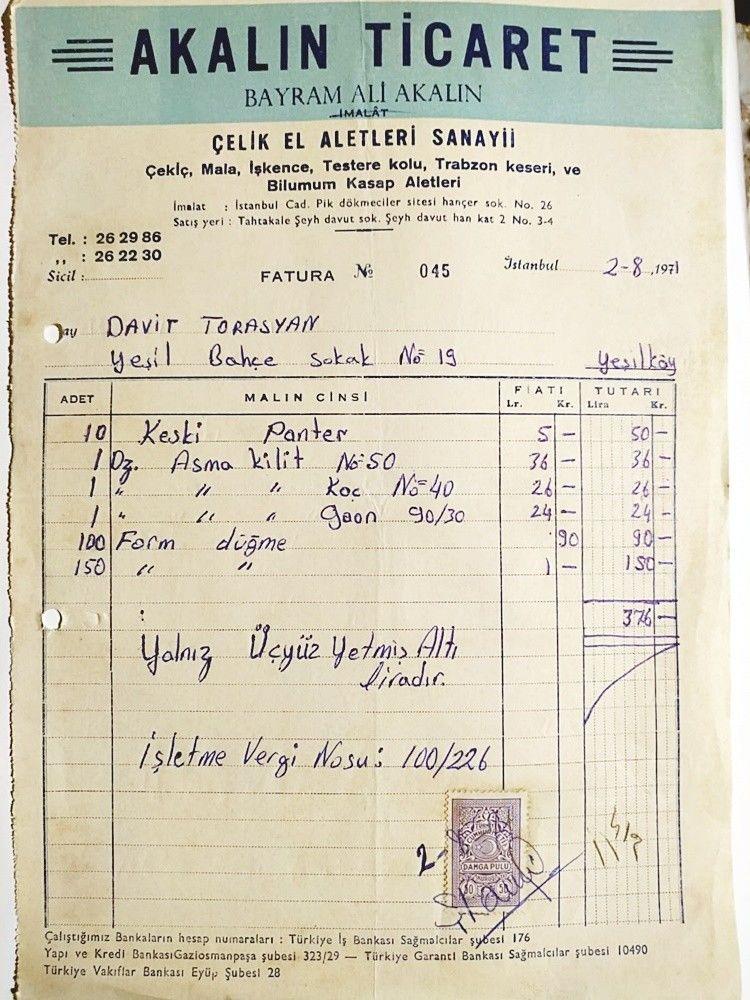 AKALIN TİCARET
BAYRAM ALİ AKALIN
İMALÂT
ÇELİK EL ALETLERİ SANAYİİ
Çekiç, Mala, İşkence, Testere kolu, Trabzon keseri, ve
Bilumum Kasap Aletleri
İmalat : İstanbul Cad. Pik dökmeciler sitesi hançer sok. No. 26
Satış yeri : Tahtakale Şeyh davut sok. Şeyh davut han kat 2 No. 3-4
Tel. : 26 29 86
,, : 26 22 30
Sicil :
FATURA № 045
İstanbul 2-8, 1971
ay DAVİT TORASYAN
Yeşil Bahçe sokak No 19 Yeşilköy
ADET MALIN CİNSİ FİATI TUTARI
Lr. Kr. Lira Kr.
10 Keski Panter 5 – 50 –
1 Dz. Asma kilit No=50 36 – 36 –
1 " " " Koç No=40 26 – 26 –
1 " " " gaon 90/30 24 – 24 –
100 Form düğme 90 90 –
150 " " 1 – 150 –
376 –
Yalnız Üçyüz Yetmiş Altı
liradır.
İşletme Vergi Nosu: 100/226
DAMGA PULU
50 50
Çalıştığımız Bankaların hesap numaraları : Türkiye İş Bankası Sağmalcılar şubesi 176
Yapı ve Kredi BankasıGaziosmanpaşa şubesi 323/29 — Türkiye Garanti Bankası Sağmalcılar şubesi 10490
Türkiye Vakıflar Bankası Eyüp Şubesi 28